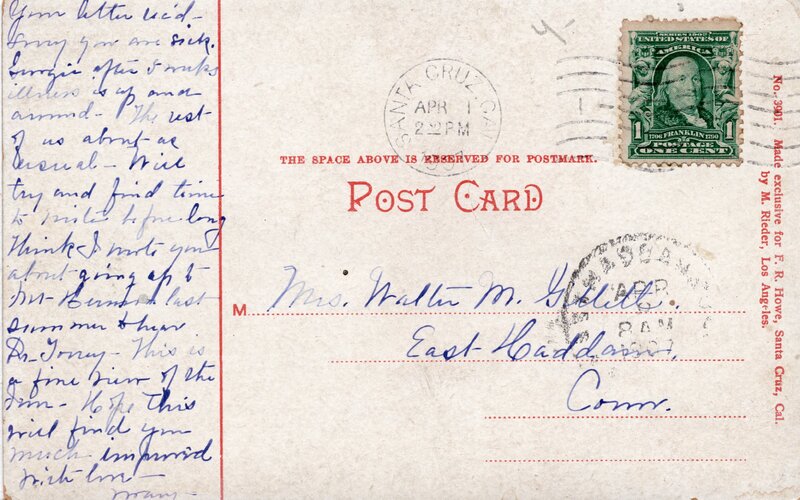 Your letter rec'd -
sorry you are sick.
Georgie after 5 weeks
illness is up and
around - The rest
of us about as
usual - Will
try and find time
to write before long
Think I wrote you
about going up to
Mt Hermon last
summer to hear
Dr. Torrey - This is
a fine view of the
Inn - Hope this
will find you
much improved
With love -
Mary -
SANTA CRUZ, CAL.
APR 1
2 PM
1907
SERIES 1902
UNITED STATES OF
AMERICA
1706 FRANKLIN 1790
1 POSTAGE 1
ONE CENT
THE SPACE ABOVE IS RESERVED FOR POSTMARK.
POST CARD
M. Mrs. Walter M.
East Haddam,
Conn.
EAST HADDAM
APR
8 AM
1907
No. 3901. Made exclusive for F. R. Howe, Santa Cruz, Cal.
by M. Rieder, Los Angeles.